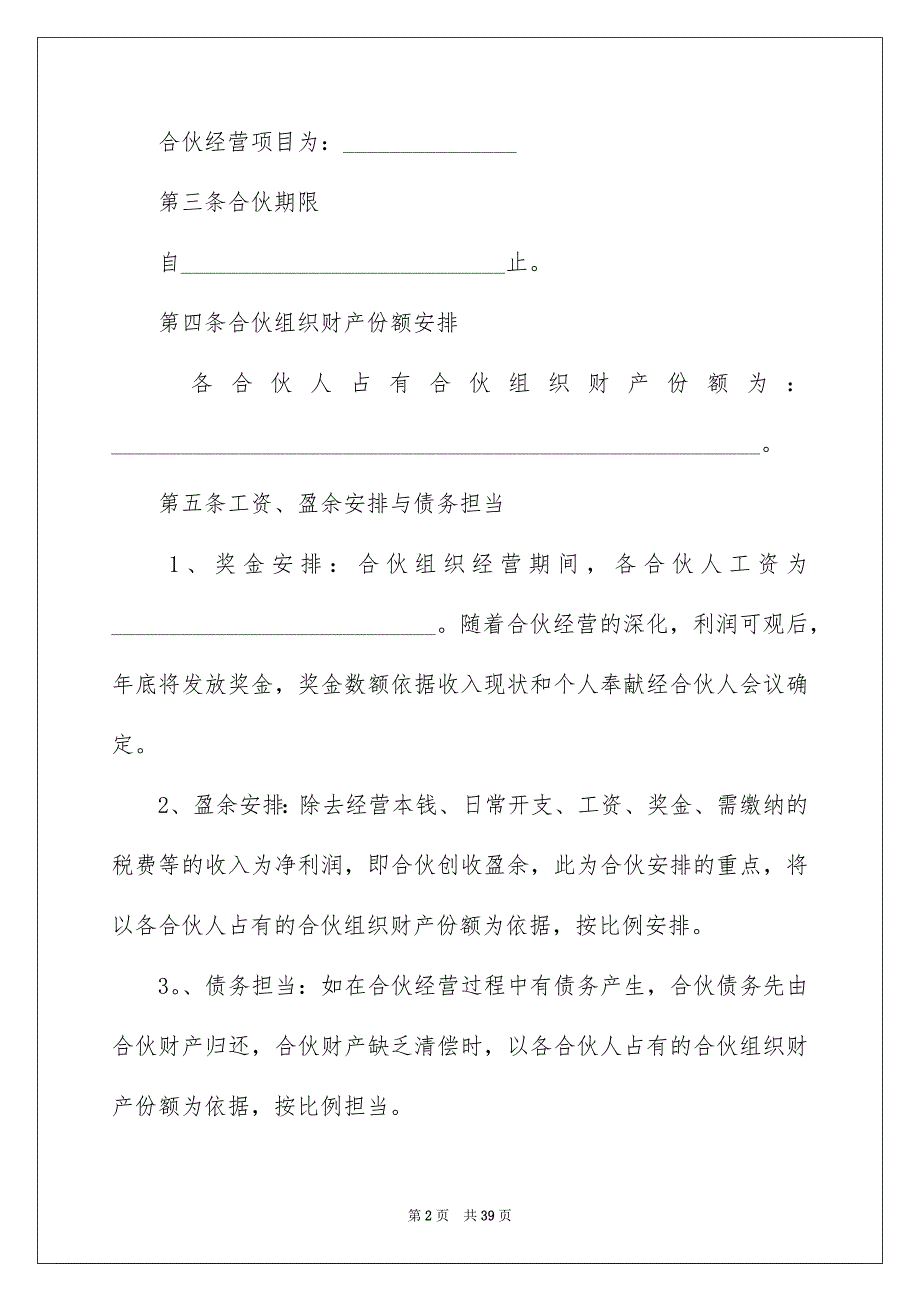 合伙经营项目为：_______________
第三条合伙期限
自____________________________止。
第四条合伙组织财产份额安排
各合伙人占有合伙组织财产份额为：
________________________________________________________。
第五条工资、盈余安排与债务担当
1、奖金安排：合伙组织经营期间，各合伙人工资为
____________________________。随着合伙经营的深化，利润可观后，
年底将发放奖金，奖金数额依据收入现状和个人奉献经合伙人会议确
定。
2、盈余安排：除去经营本钱、日常开支、工资、奖金、需缴纳的
税费等的收入为净利润，即合伙创收盈余，此为合伙安排的重点，将
以各合伙人占有的合伙组织财产份额为依据，按比例安排。
3。、债务担当：如在合伙经营过程中有债务产生，合伙债务先由
合伙财产归还，合伙财产缺乏清偿时，以各合伙人占有的合伙组织财
产份额为依据，按比例担当。
第 2 页 共 39 页